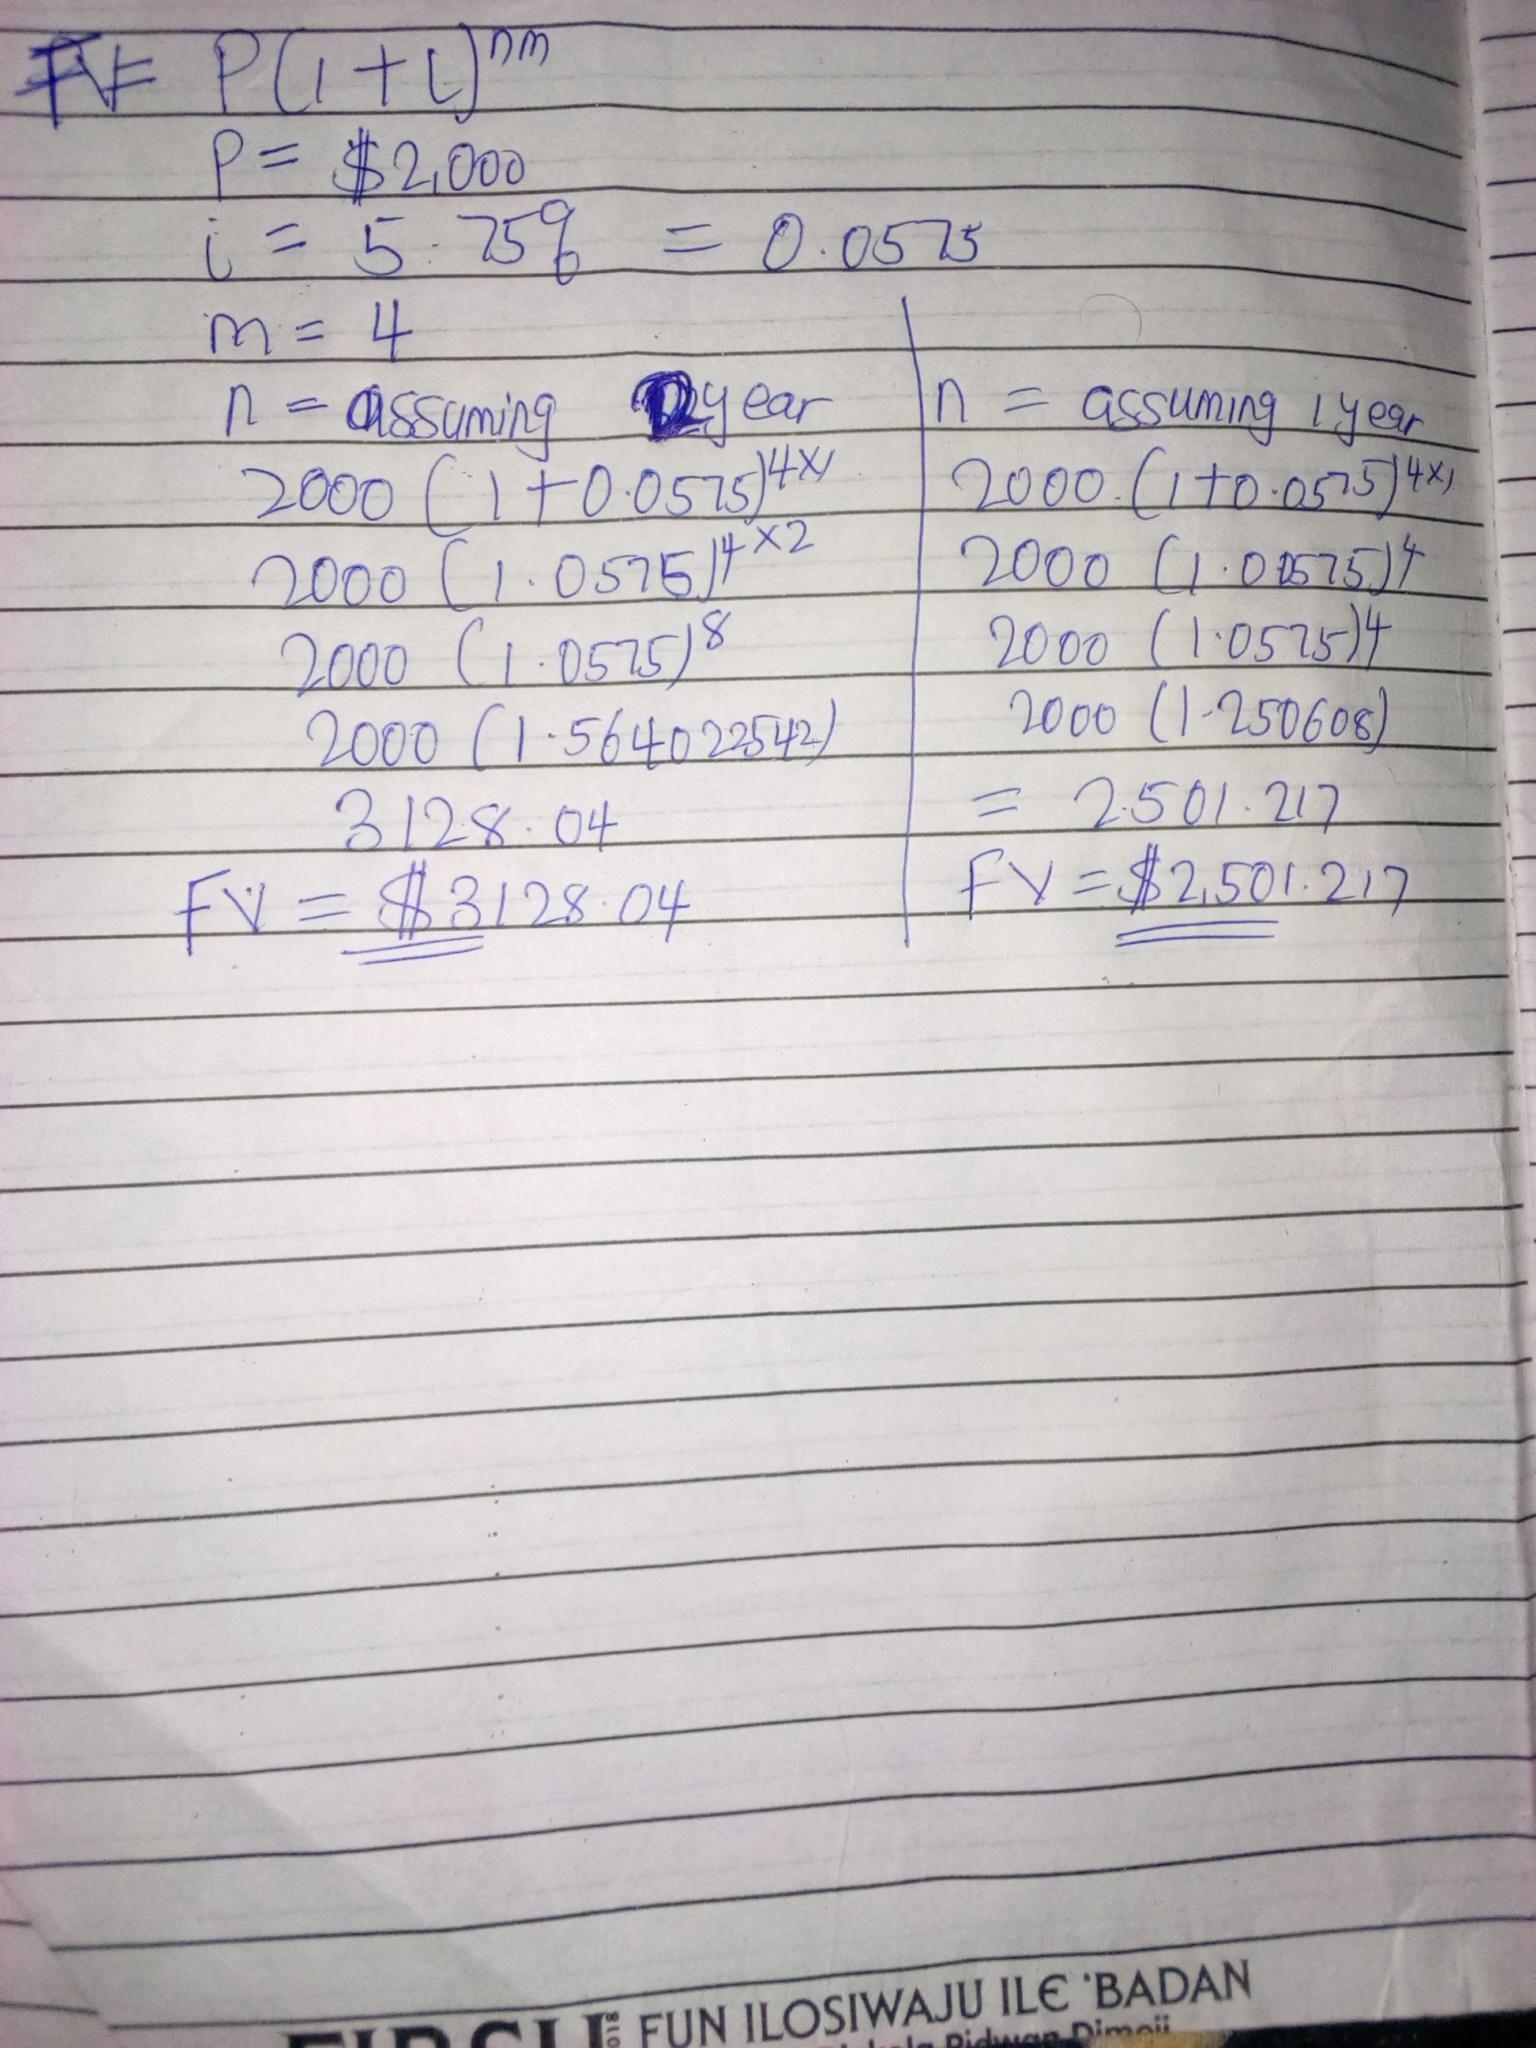 FV= P(1+i)^nm
P= $2,000
i = 5.75% = 0.0575
m = 4
n = assuming 2year
2000 (1+0.0575)^4×1
2000 (1.0575)^4×2
2000 (1.0575)^8
2000 (1.564022542)
3128.04
FV = $3128.04
n = assuming 1year
2000 (1+0.0575)^4×1
2000 (1.0575)^4
2000 (1.0575)^4
2000 (1.250608)
= 2501.217
FV = $2,501.217
FUN ILOSIWAJU ILE 'BADAN
Ridwan Dimeji